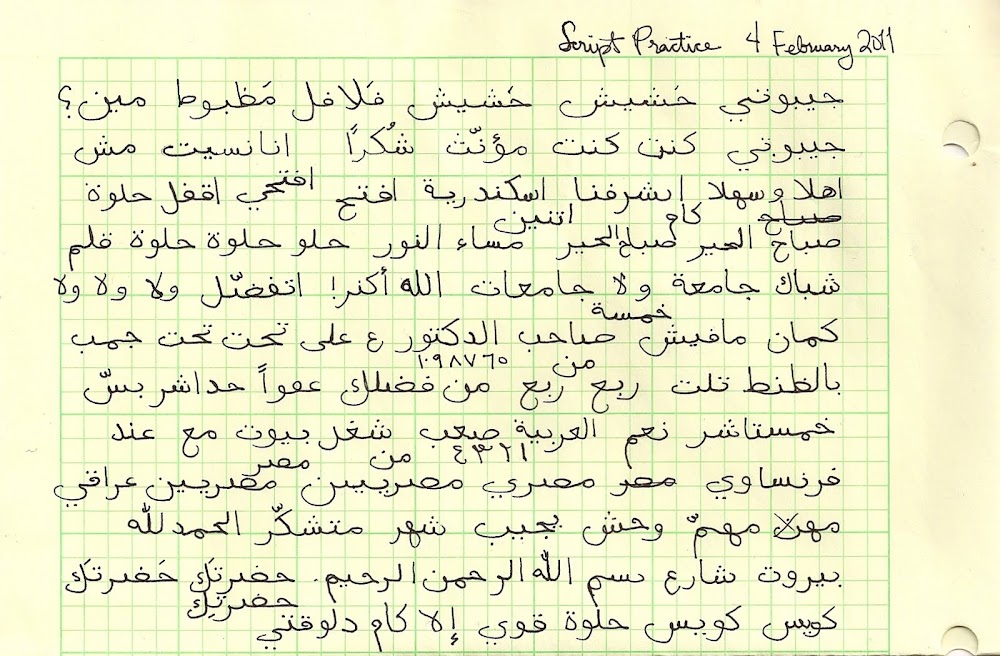 Script Practice 4 February 2011
جيبوتي حَشيش حَشيش فَلافل مَظبوط مين؟
جيبوتي كنت كنت مؤنّث شُكرًا انا نسيت مش
اهلا وسهلا اتشرفنا اسكندرية افتح افتحي اقفل حلوة
صباح كام اتنين
صباح الخير صباح الخير مساء النور حلو حلوة حلوة قلم
شباك جامعة ولا جامعات الله أكبر! اتفضّل ولا ولا ولا
خمسة
كمان مافيش صاحب الدكتور ع على تحت تحت جمب
١٠٩٨٧٦٥ من
بالظبط تلت ربع ربع من فضلك عفواً حداشر بسّ
خمستاشر نعم العربية صعب شغل بيوت مع عند
٤٣٢١ من مصر
فرنساوي مصر مصري مصريين مصريين عراقي
مهمّ وحش بجيب شهر متشكّر الحمد لله
بيروت شارع بسم الله الرحمن الرحيم. حضرتَك حَضرتَك
حضرتِك
كويس كويس حلوة قوي إلا كام دلوقتي